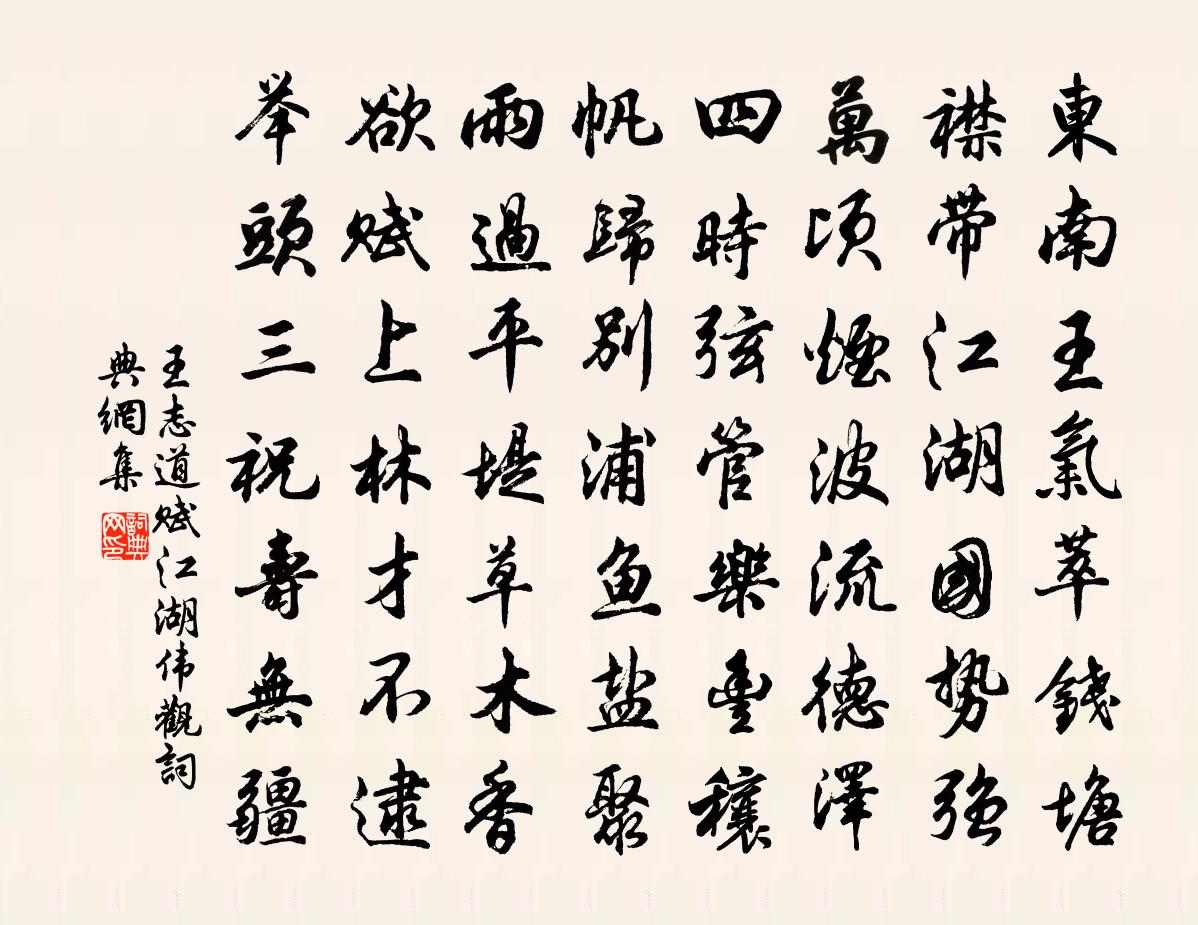 東南王氣萃錢塘
襟带江湖國势强
萬頃煙波流德澤
四時弦管樂豊穰
帆歸别浦鱼盐聚
雨過平堤草木香
欲赋上林才不逮
举頭三祝壽無疆
王志道赋江湖伟觀詞
典網集
詞典
网印